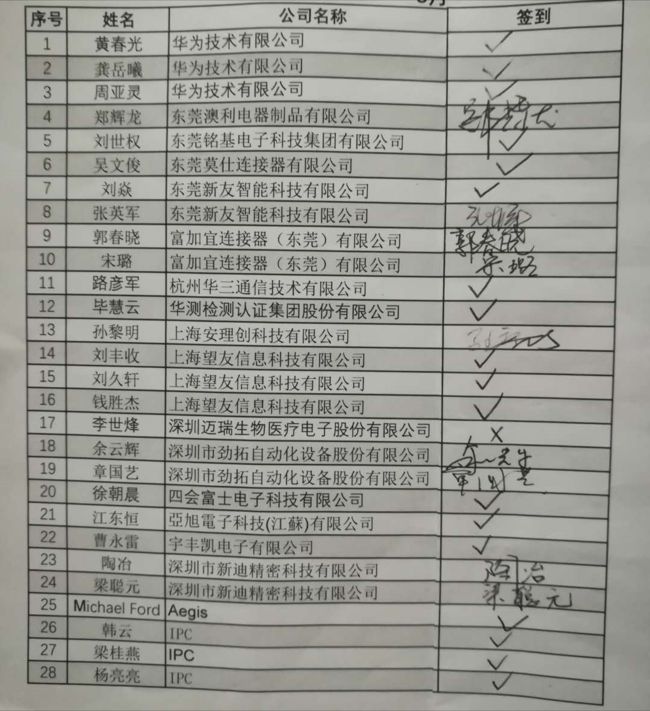 序号 姓名 公司名称 签到
1 黄春光 华为技术有限公司 ✓
2 龚岳曦 华为技术有限公司 ✓
3 周亚灵 华为技术有限公司 ✓
4 郑辉龙 东莞澳利电器制品有限公司
5 刘世权 东莞铭基电子科技集团有限公司 ✓
6 吴文俊 东莞莫仕连接器有限公司 ✓
7 刘焱 东莞新友智能科技有限公司 ✓
8 张英军 东莞新友智能科技有限公司
9 郭春晓 富加宜连接器（东莞）有限公司 郭春晓
10 宋璐 富加宜连接器（东莞）有限公司 宋璐
11 路彦军 杭州华三通信技术有限公司 ✓
12 毕慧云 华测检测认证集团股份有限公司 ✓
13 孙黎明 上海安理创科技有限公司
14 刘丰收 上海望友信息科技有限公司 ✓
15 刘久轩 上海望友信息科技有限公司 ✓
16 钱胜杰 上海望友信息科技有限公司 ✓
17 李世烽 深圳迈瑞生物医疗电子股份有限公司 X
18 余云辉 深圳市劲拓自动化设备股份有限公司
19 章国艺 深圳市劲拓自动化设备股份有限公司
20 徐朝晨 四会富士电子科技有限公司 ✓
21 江东恒 亞旭電子科技(江蘇)有限公司 ✓
22 曹永雷 宇丰凯电子有限公司 ✓
23 陶冶 深圳市新迪精密科技有限公司 陶冶
24 梁聪元 深圳市新迪精密科技有限公司 梁聪元
25 Michael Ford Aegis ✓
26 韩云 IPC ✓
27 梁桂燕 IPC ✓
28 杨亮亮 IPC ✓